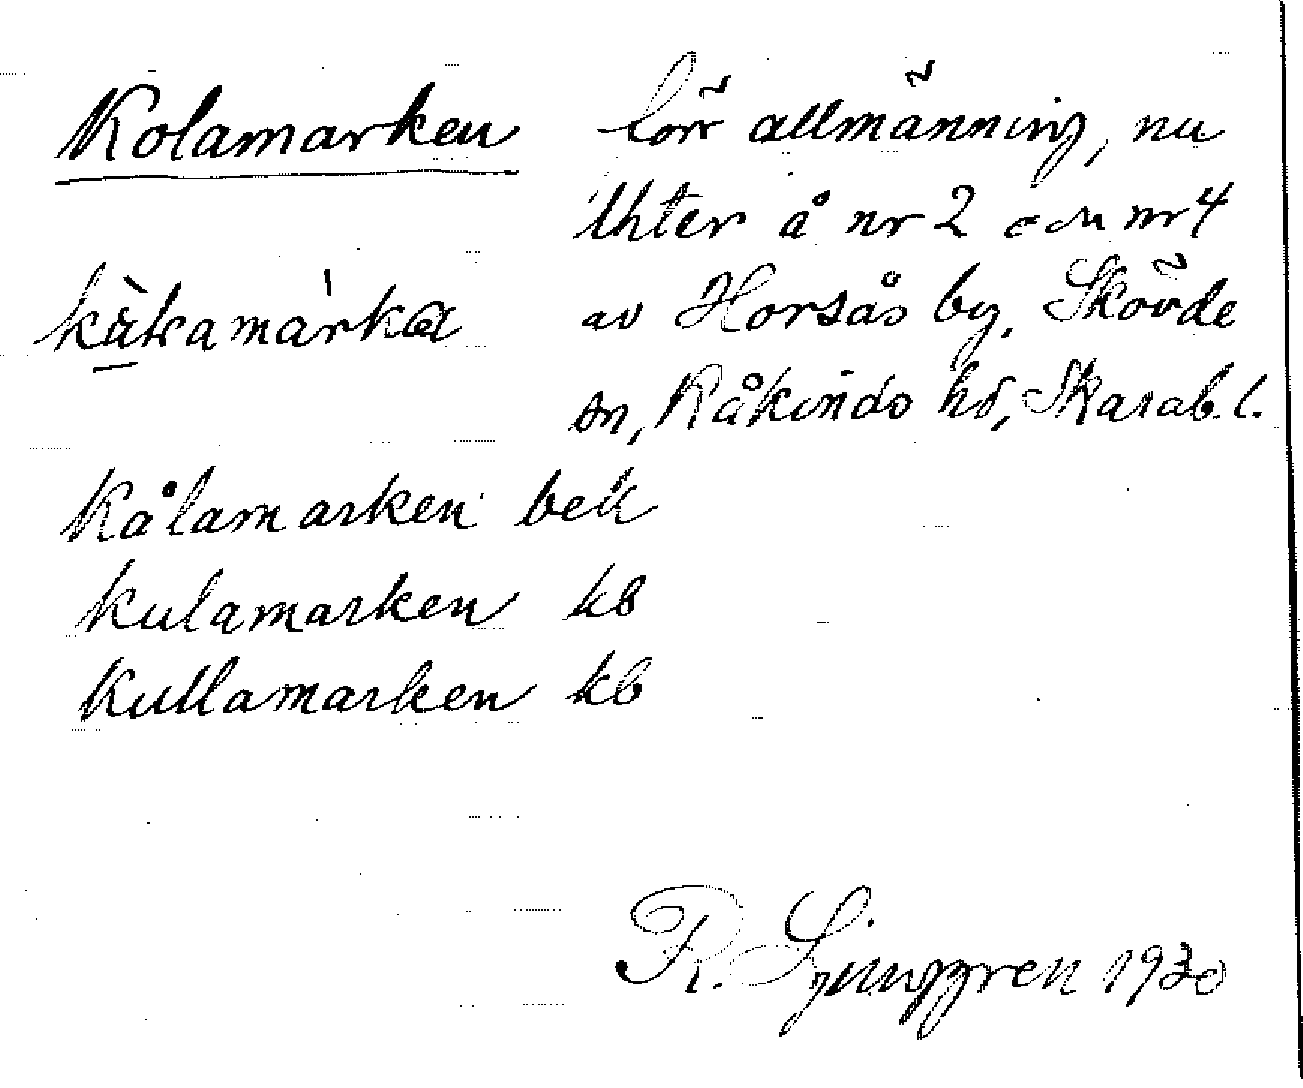 Kolamarken
förr allmänning, nu
åkrar å nr 2 och nr 4
av Horsås by, Skövde
sn, Kåkinds hd, Skarab. l.
Kålamarken bek
Kulamarken kb
Kullamarken kb
R. Ljunggren 1930